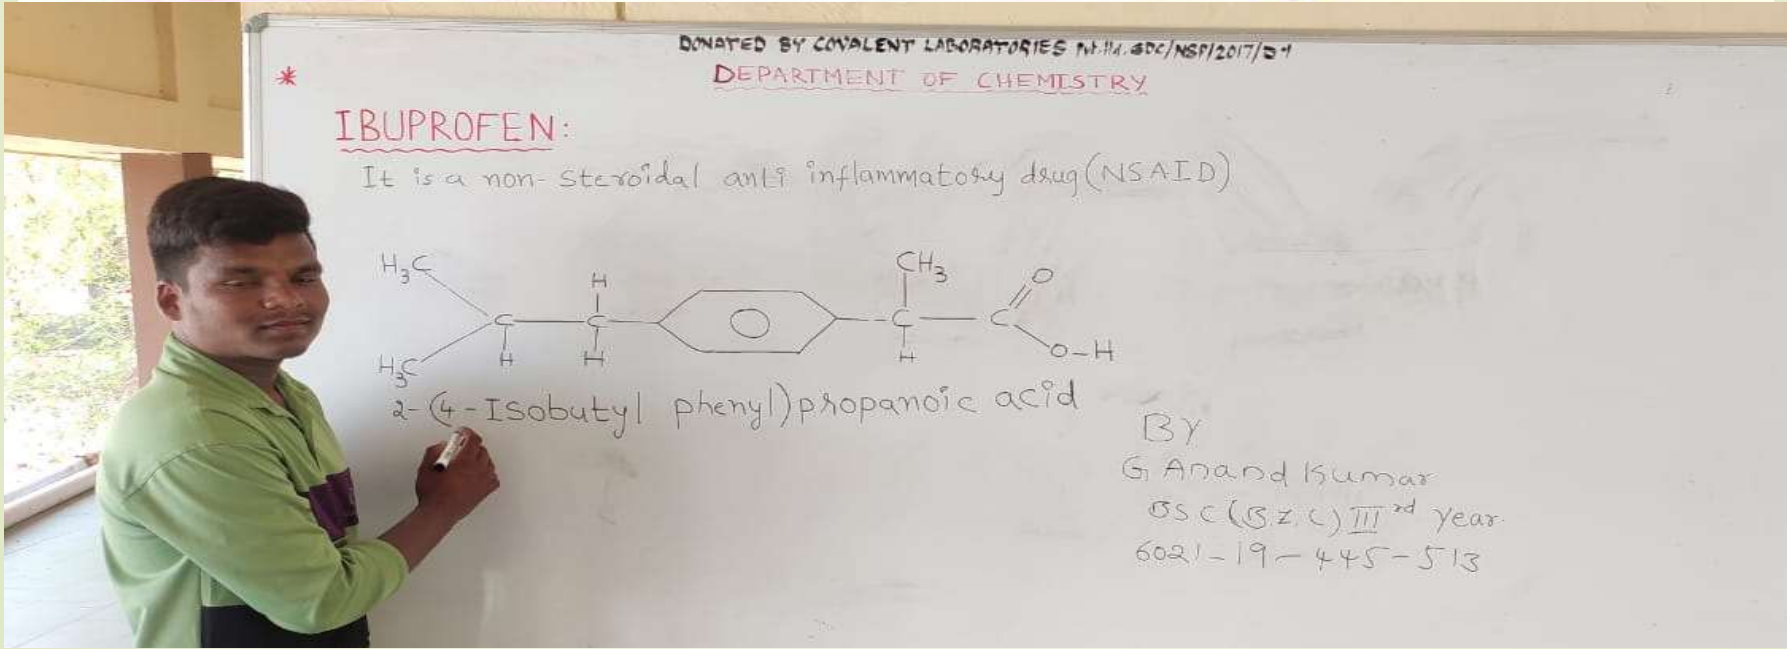 DONATED BY COVALENT LABORATORIES Pvt.ltd. GDC/NSP/2017/
DEPARTMENT OF CHEMISTRY
*
IBUPROFEN:
It is a non-steroidal anti inflammatory drug (NSAID)
H3C CH3 O
H
C C C C
H H H O-H
H3C
2-(4-Isobutyl phenyl)propanoic acid
BY
G Anand Kumar
BSC (B.Z.C) III rd year.
6021-19-445-513